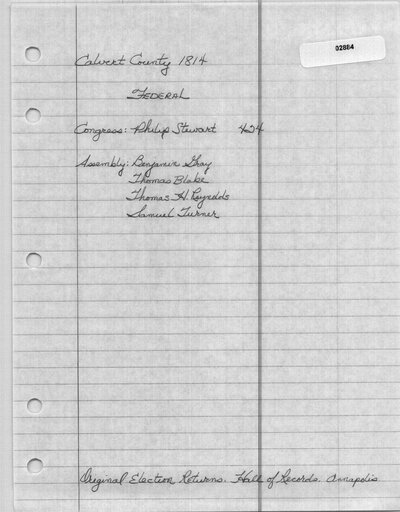 02884
Calvert County 1814
FEDERAL
Congress: Philip Stewart 424
Assembly: Benjamin Gray
Thomas Blake
Thomas H. Reynolds
Samuel Turner
Original Election Returns. Hall of Records. Annapolis